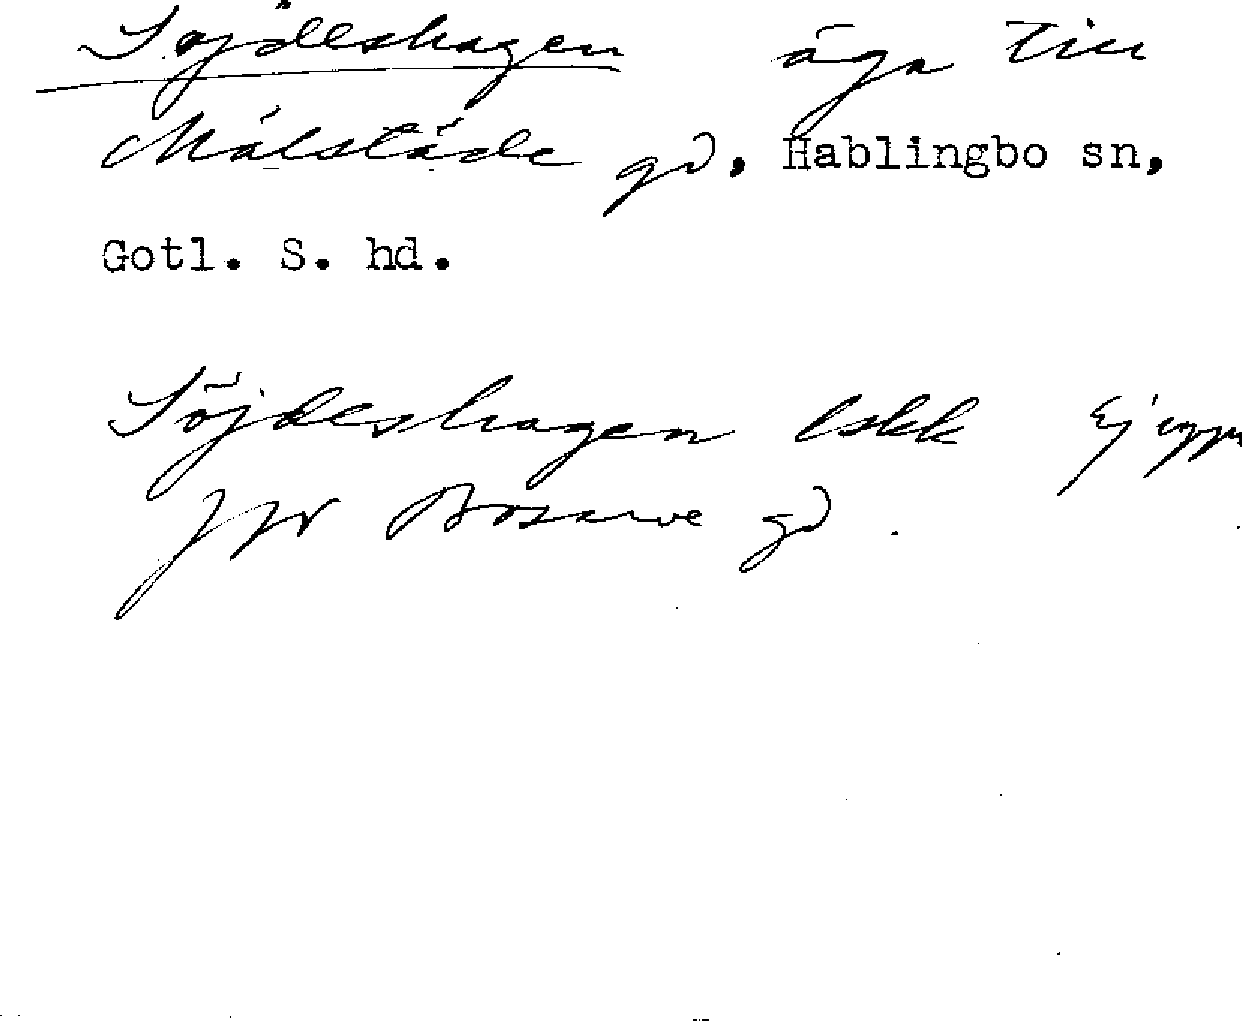 Söjdeshagen äga till
Målstäde gd, Hablingbo sn,
Gotl. S. hd.
Söjdeshagen lskk Ej uppr
Bosarve gd.